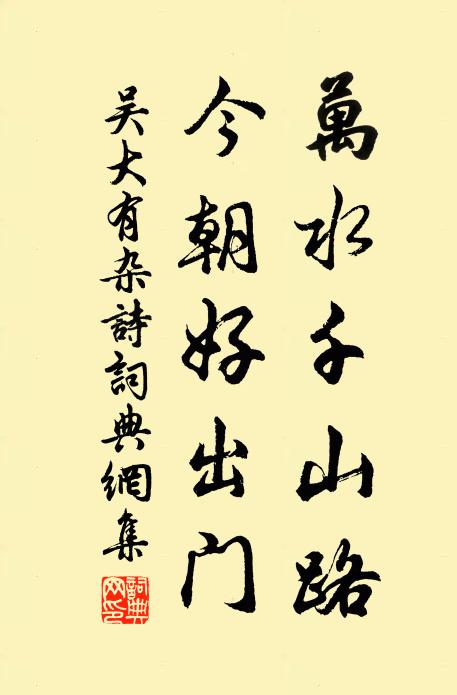 萬水千山路
今朝好出門
吴大有杂詩詞典網集
詞典网印